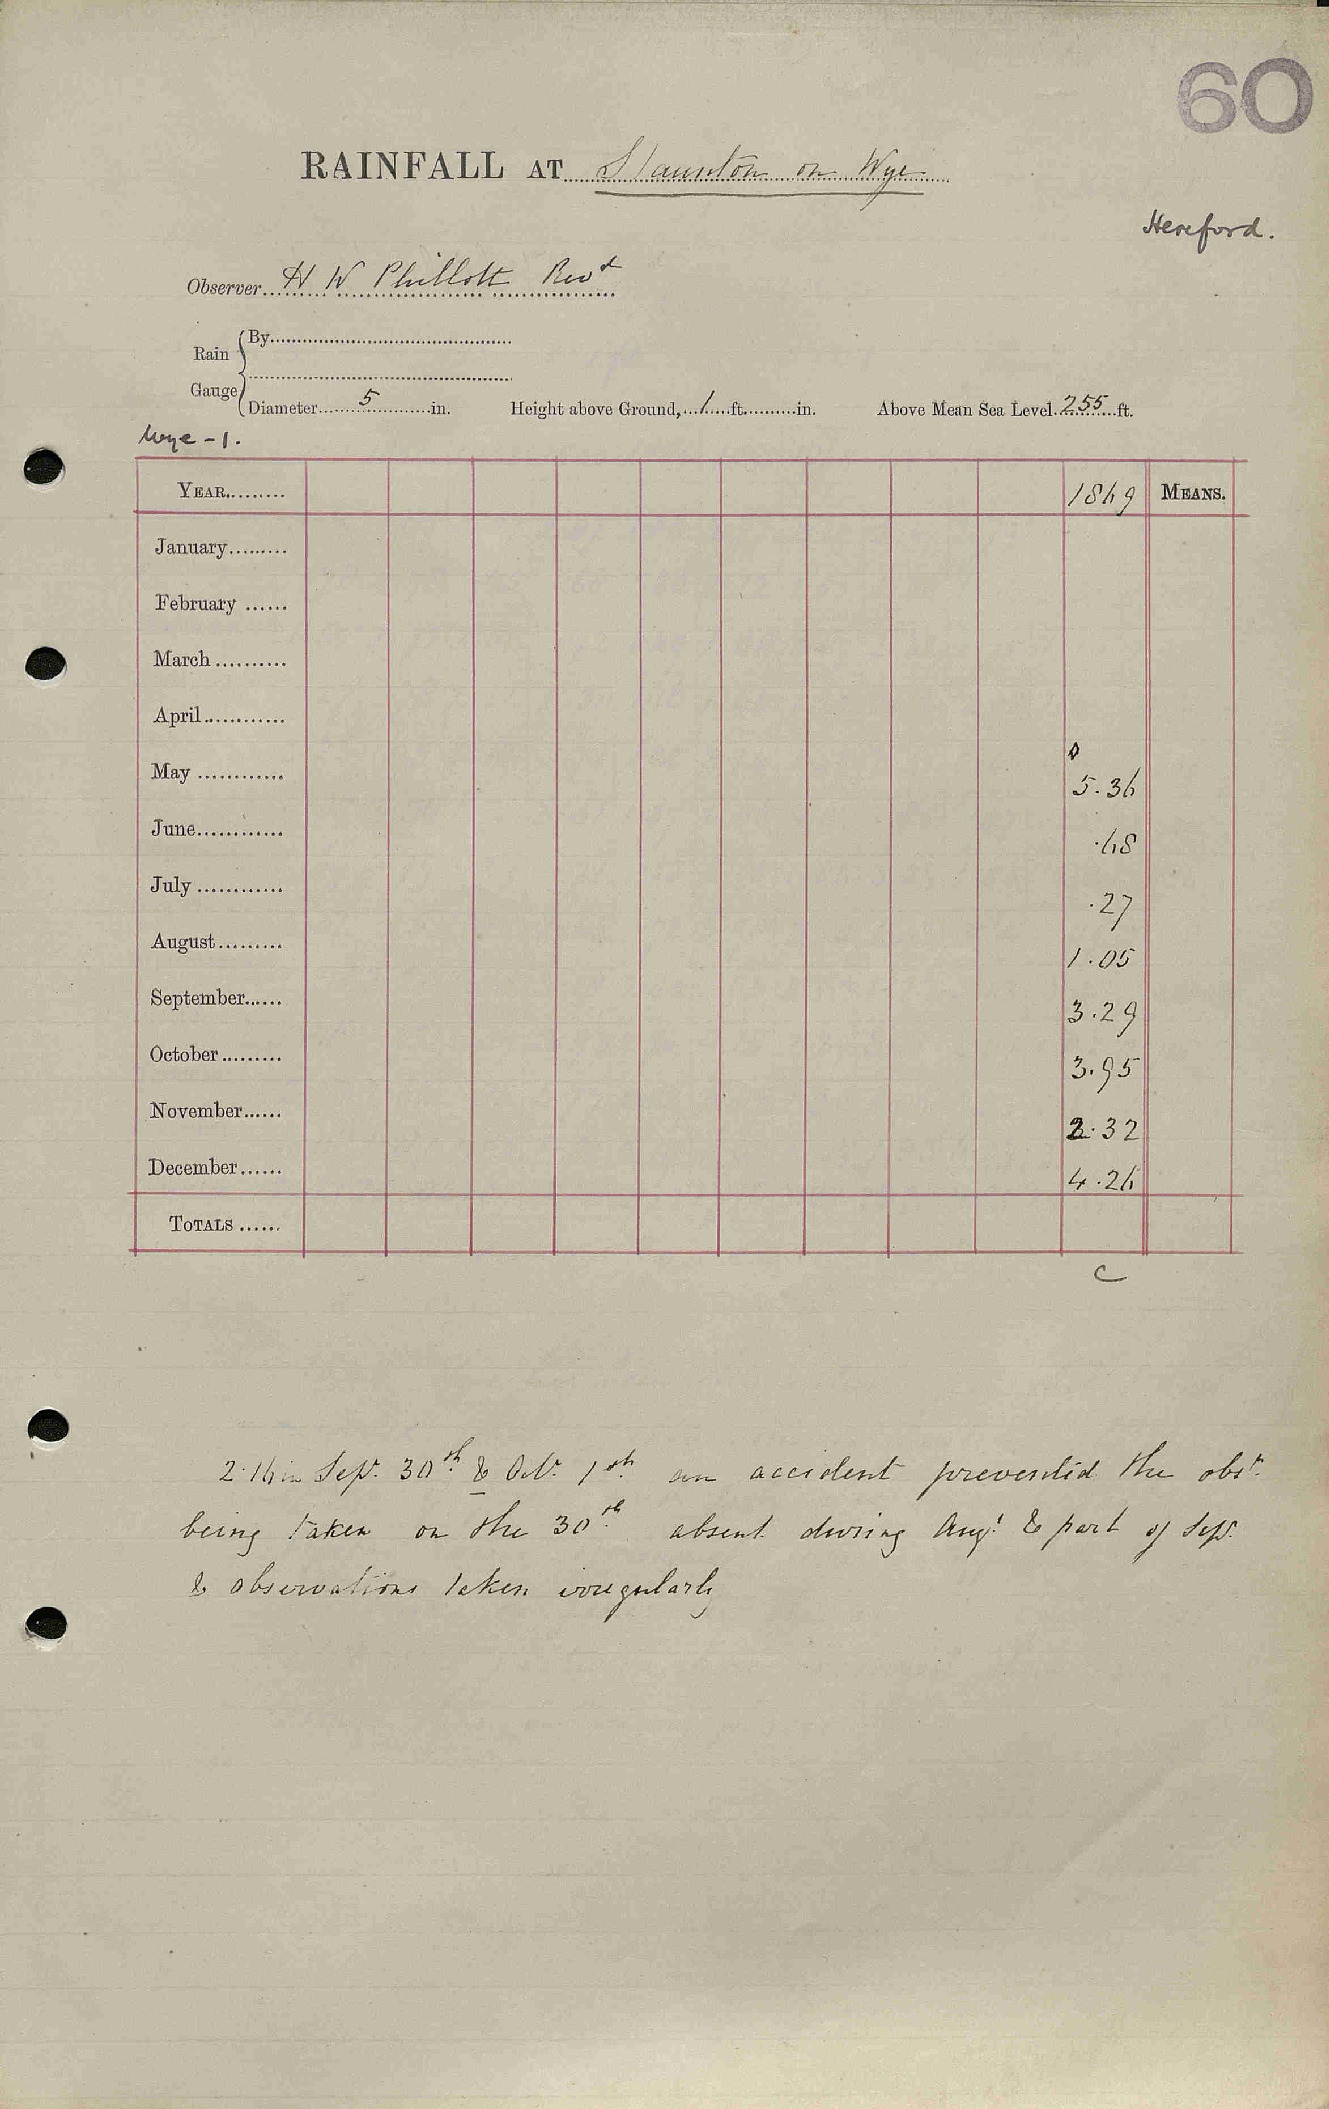 60
RAINFALL AT Staunton on Wye
Hereford.
Observer H W Phillott Revd
Rain Gauge
By
Diameter 5 in. Height above Ground, 1 ft. in. Above Mean Sea Level 255 ft.
Wye - 1.
YEAR 1869 MEANS.
January
February
March
April
May 5.36
June .68
July .27
August 1.05
September 3.29
October 3.95
November 2.32
December 4.26
TOTALS
C
2.16 in Sept. 30th & Oct. 1st. an accident prevented the obsn.
being taken on the 30th. absent during Augt. & part of Sept.
& observations taken irregularly